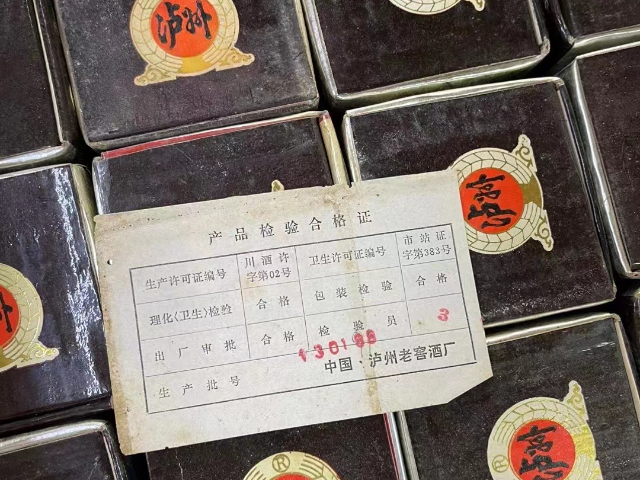 泸州
产品检验合格证
生产许可证编号 川酒许字第02号 卫生许可证编号 市站证字第383号
理化(卫生)检验 合格 包装检验 合格
出厂审批 合格 检验员 3
生产批号 130188
中国·泸州老窖酒厂
泸州
泸州
®